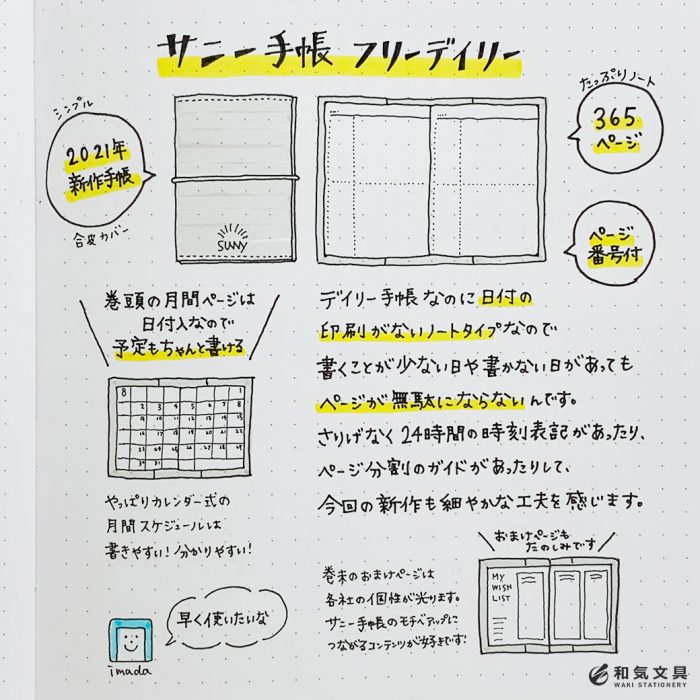 サニー手帳 フリーデイリー
シンプル
2021年
新作手帳
合皮カバー
SUNNY
たっぷりノート
365
ページ
ページ
番号付
巻頭の月間ページは
日付入なので
予定もちゃんと書ける
8
1
2 3 4 5 6 7 8
9 10 11 12 13 14 15
16 17 18 19 20 21 22
23 24 25 26 27 28 29
30 31
やっぱりカレンダー式の
月間スケジュールは
書きやすい!分かりやすい!
デイリー手帳なのに日付の
印刷がないノートタイプなので
書くことが少ない日や書かない日があっても
ページが無駄にならないんです。
さりげなく24時間の時刻表記があったり、
ページ分割のガイドがあったりして、
今回の新作も細やかな工夫を感じます。
巻末のおまけページは
各社の個性が光ります。
サニー手帳のモチベアップに
つながるコンテンツが好きです!
おまけページも
たのしみです
MY
WISH
LIST
早く使いたいな
imada
和気文具
WAKI STATIONERY